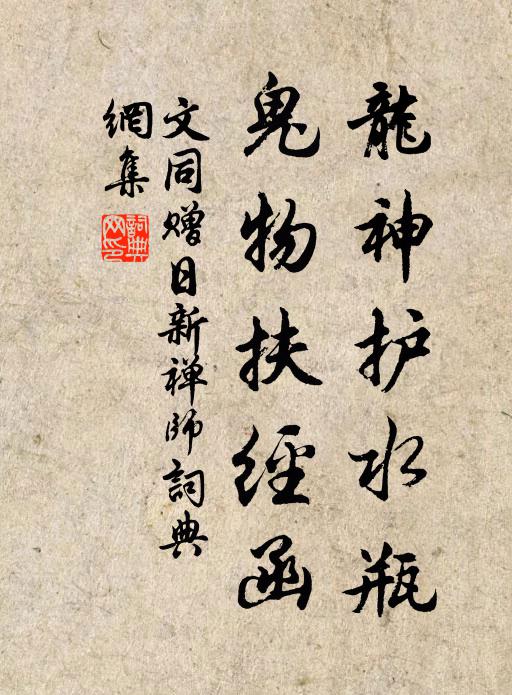 龍神护水瓶
鬼物扶經函
文同赠日新禅師詞典
網集
詞典
网印